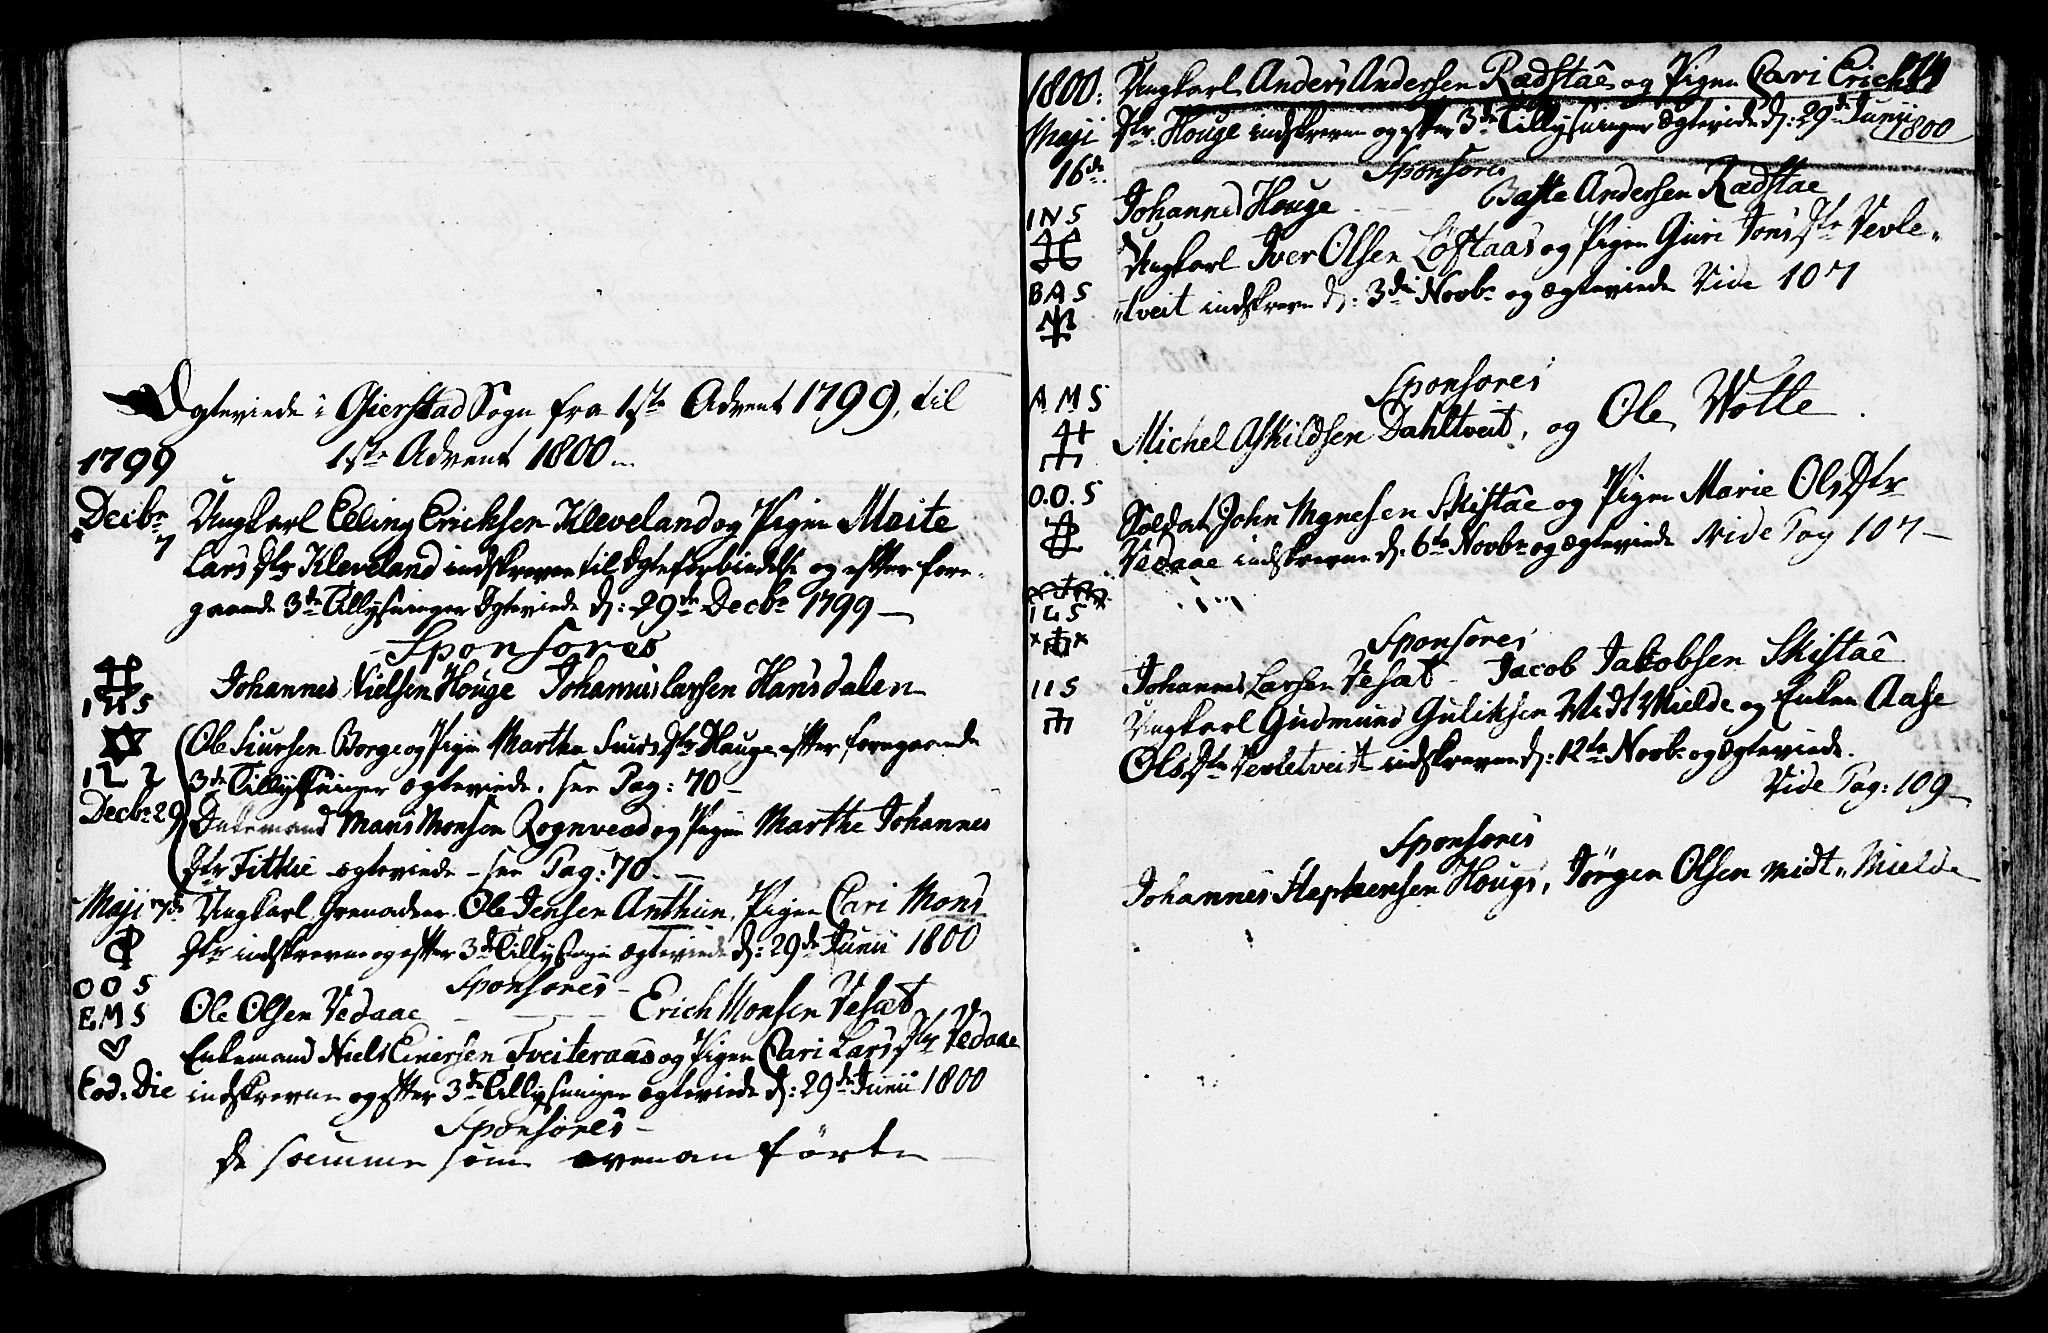 Ægteviede i Gierstad Sogn fra 1ste Advent 1799, til
1ste Advent 1800
1799
Decbr 7
Ungkarl Elling Ericksen Kleveland og Pigen Maite
Lars Dtr Kleveland indskrevne til Ægteforbindelse og efter fore-
gaaende 3de Tillysninger Ægteviede d: 29de Decbr 1799
Sponsores
Johannes Nielsen Houge Johannes Larsen Hansdalen
INS
Ole Siursen Borge og Pigen Martha Siurs Dtr Hauge efter foregaaende
3de Tillysninger ægteviede. see Pag: 70
Decbr 29
Enkemand Mans Monsen Rognvead og Pigen Marthe Johannes
Dtr Fitkie ægteviede - see Pag: 70
Maji 7de
Ungkarl Grenadeer Ole Jensen Anthun, Pigen Cari Mons
Dtr indskrevne og efter 3de Tillysnin ægteviede d: 29de Junii 1800
Sponsores
OOS
EMS
Ole Olsen Vedaae - - - Erich Monsen Vesæt
Enkemand Niels Einersen Tveiteraas og Pigen Cari Lars Dtr Vedaae
Eod. Die
indskrevne og efter 3de Tillysninger ægteviede d: 29de Junii 1800
Sponsores
de samme som ovenanførte
1800:
Ungkarl Anders Andersen Rædstae og Pigen Cari Erichs
Maji
Dtr. Houge indskrevne og efter 3de Tillysninger Ægteviede d: 29de Junii
1800
16de
Sponsores
INS
Johannes Houge - - Baste Andersen Rædstae
Ungkarl Iver Olsen Løftaas og Pigen Guri Jons Dtr Vevle-
BAS
tveit indskrevne d: 3die Novbr og ægteviede Vide 107
Sponsores
AMS
Michel Askildsen Dahltveit, og Ole Votle
O.O.S
Soldat John Mgnesen Skistae og Pigen Marie Ols Dtr
Vedaae indskrevne d: 6te Novbr og ægteviede Vide Pag 107
ILS
Sponsores
Johannes Larsen Vesæt - Jacob Jakobsen Skistae
IIS
Ungkarl Gudmund Guliksen Midt Mielde og Enken Aase
Ols Dtr Vevletveit indskrevne d: 12te Novbr og ægteviede.
Vide Pag: 109
Sponsores
Johannes Stephensen Houge, Jørgen Olsen Midt-Mielde